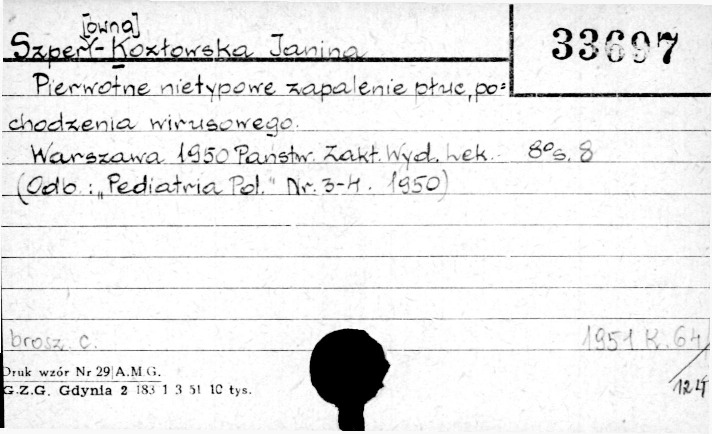 [owna]
Szperl-Kozłowska Janina
33697
Pierwotne nietypowe zapalenie płuc, po=
chodzenia wirusowego.
Warszawa 1950 Państw. Zakł. Wyd. Lek. 8° s. 8
(Odb.: „Pediatria Pol." Nr. 3-4. 1950)
brosz. c.
1951 K. 64/
124
Druk wzór Nr 29|A.M G.
G.Z.G. Gdynia 2 183 1 3 51 10 tys.